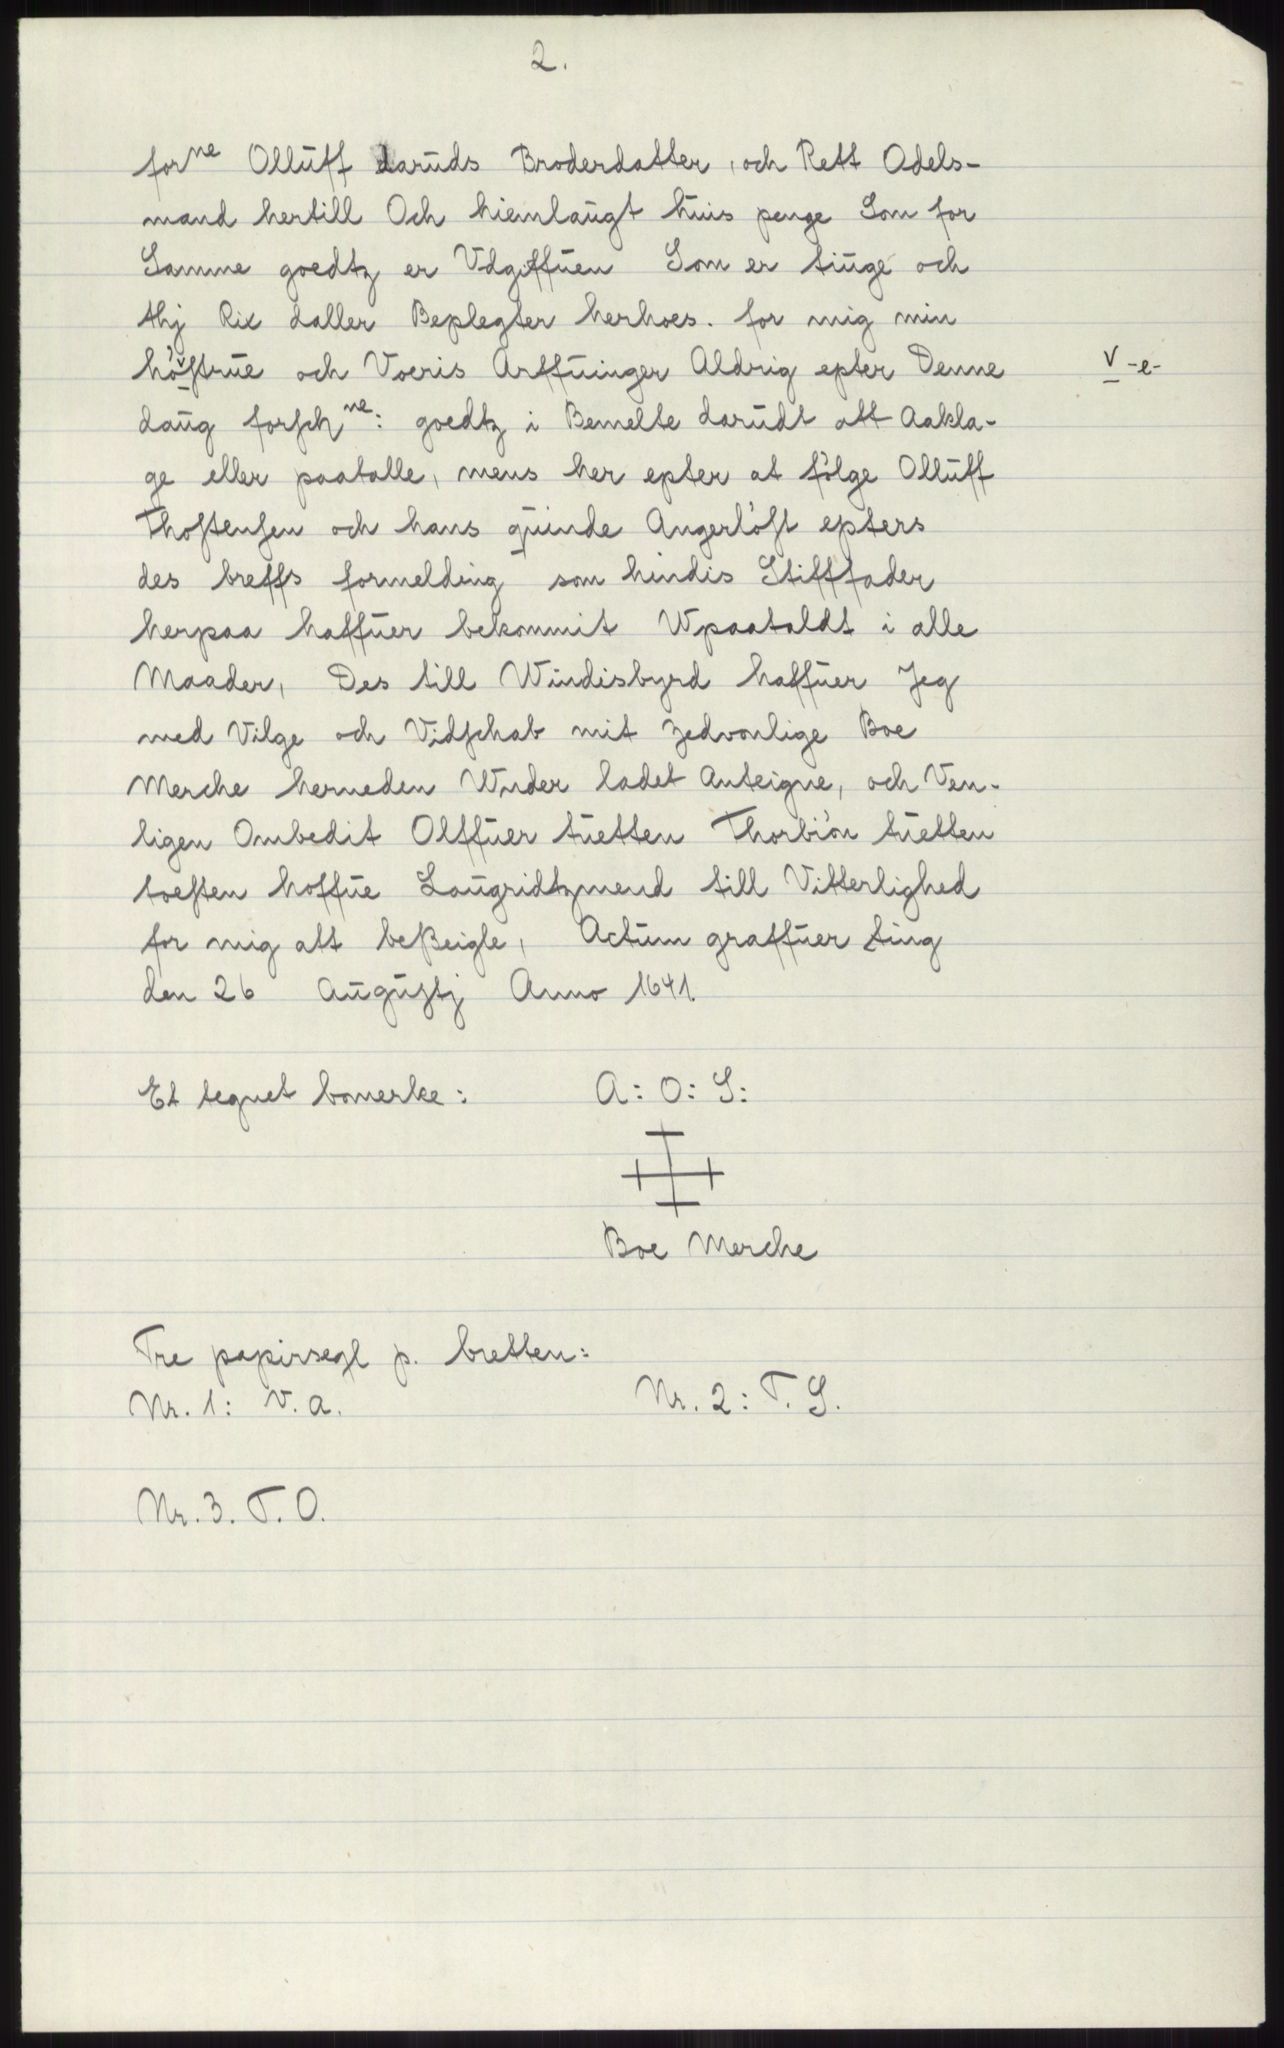 2.
forne Olluff daruds Broderdatter, och Rett Odels-
mand hertill Och hiemlaugt huis penge Som for
Samme goedtz er Vdgiffuen Som er tiuge och
thj Rix daller Beplegter herhoes. for mig min
höstrue och Voeris Arffuinger Aldrig epter Denne V -e-
daug forschne: goedtz i Bemelte darudt att Aakla-
ge eller paatalle, mens her epter at följe Olluff
Thostensen och hans quinde Angerlöst epters
des breffs formelding som hindis Stifffader
herpaa haffuer bekommit Wpaataldt i alle
Maader, Des till Windisbyrd haffuer Jeg
med Vilge och Vidschab mit zedvonlige Boe
Merche herneden Wnder ladet Anteigne, och Ven-
ligen Ombedit Olffuer tuetten Thorbiön tuetten
toesten hoffue Laugridtzmend till Vitterlighed
for mig att beßeigle, Actum graffuer ting
den 26 Augustj Anno 1641.
Et tegnet bomerke: A: O: S:
Boe Merche
Tre papirsegl p. bretten:
Nr. 1: V. A. Nr. 2: T. S.
Nr. 3. T. O.